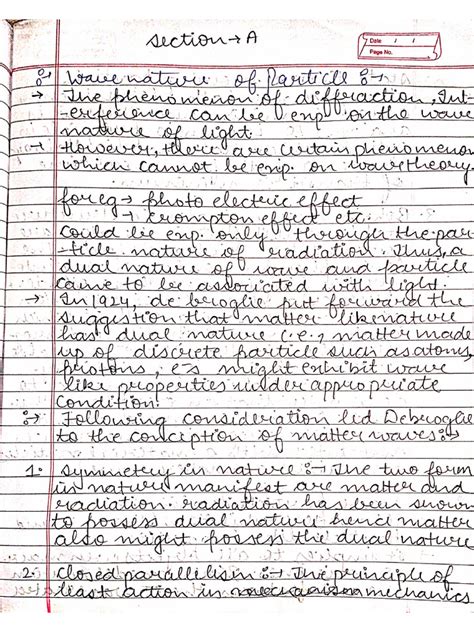 Section → A
Date / /
Page No.
Wave nature of Particle :→
→ The phenomenon of diffraction, Int-
-erference can be exp. on the wave
nature of light.
→ However, there are certain phenomenon
which cannot be exp. on wave theory.
for eg → photo electric effect
→ crompton effect etc.
could be exp. only through the par-
-ticle nature of radiation. Thus, a
dual nature of wave and particle
came to be associated with light.
→ In 1924, de broglie put forward the
suggestion that matter like nature
has dual nature (i.e., matter made
up of discrete particle such as atoms,
protons, e-s might exhibit wave
like properties under appropriate
condition.
:→ Following consideration led Debroglie
to the conception of matter waves :→
1. Symmetry in nature :→ The two form
in nature manifest are matter and
radiation. radiation has been shown
to possess dual nature hence matter
also might possess the dual nature
2. Closed parallelism :→ The principle of
least action in mechanics